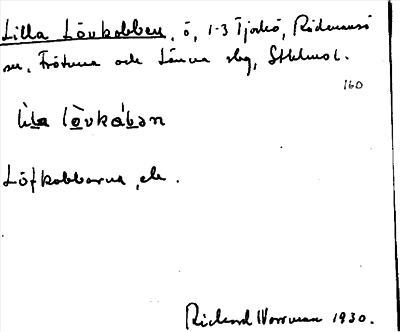 Lilla Lövkobben, ö, 1-3 Tjockö, Rådmansö
sn, Frötuna och Länna slg, Sthlms l.
160
lìla lö̀vkåbən
Löfkobbarna, ek.
Richard Norrman 1930.